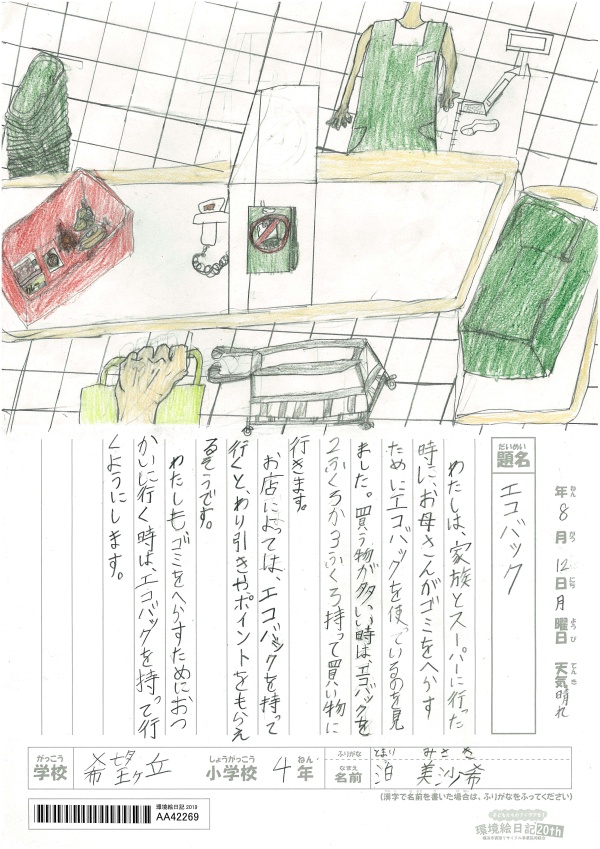 だいめい
題名
エコバック
年 8月 12日 月曜日 天気 晴れ
ねん がつ にち ようび てんき
わたしは、家族とスーパーに行った
時に、お母さんがゴミをへらす
ためにエコバッグを使っているのを見
ました。買う物が多い時はエコバックを
2ふくろか3ふくろ持って買い物に
行きます。
お店によっては、エコバックを持って
行くと、わり引きやポイントをもらえ
るそうです。
わたしもゴミをへらすためにおつ
かいに行く時は、エコバッグを持って行
くようにします。
がっこう しょうがっこう ねん ふりがな とまり みさき
学校 希望ヶ丘 小学校 4年 なまえ 名前 泊 美沙希
(漢字で名前を書いた場合は、ふりがなをふってください)
環境絵日記 2019
AA42269
環境絵日記 20th